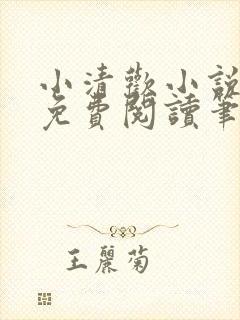 小清歡小說
免費閱讀筆
王麗菊